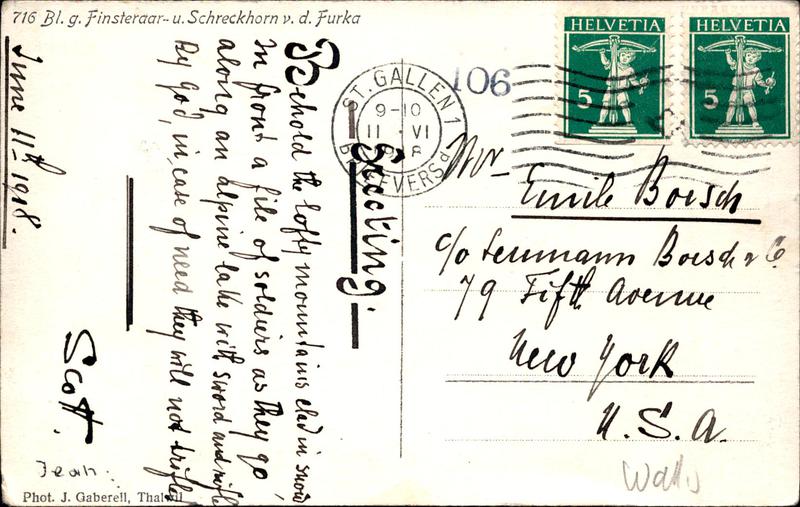 716 Bl. g. Finsteraar- u. Schreckhorn v. d. Furka
June 11th 1918.
Greeting.
Behold the lofty mountains clad in snow
In front a file of soldiers as they go
along an alpine lake with sword and rifle
By god, in case of need they will not trifle
Scott.
Jean.
Phot. J. Gaberell, Thalwil
ST. GALLEN 1
9-10
11 VI
106
HELVETIA
5
HELVETIA
5
Mr
Emile Boesch
c/o Boesch & Co
79 Fifth Avenue
New York
U. S. A.